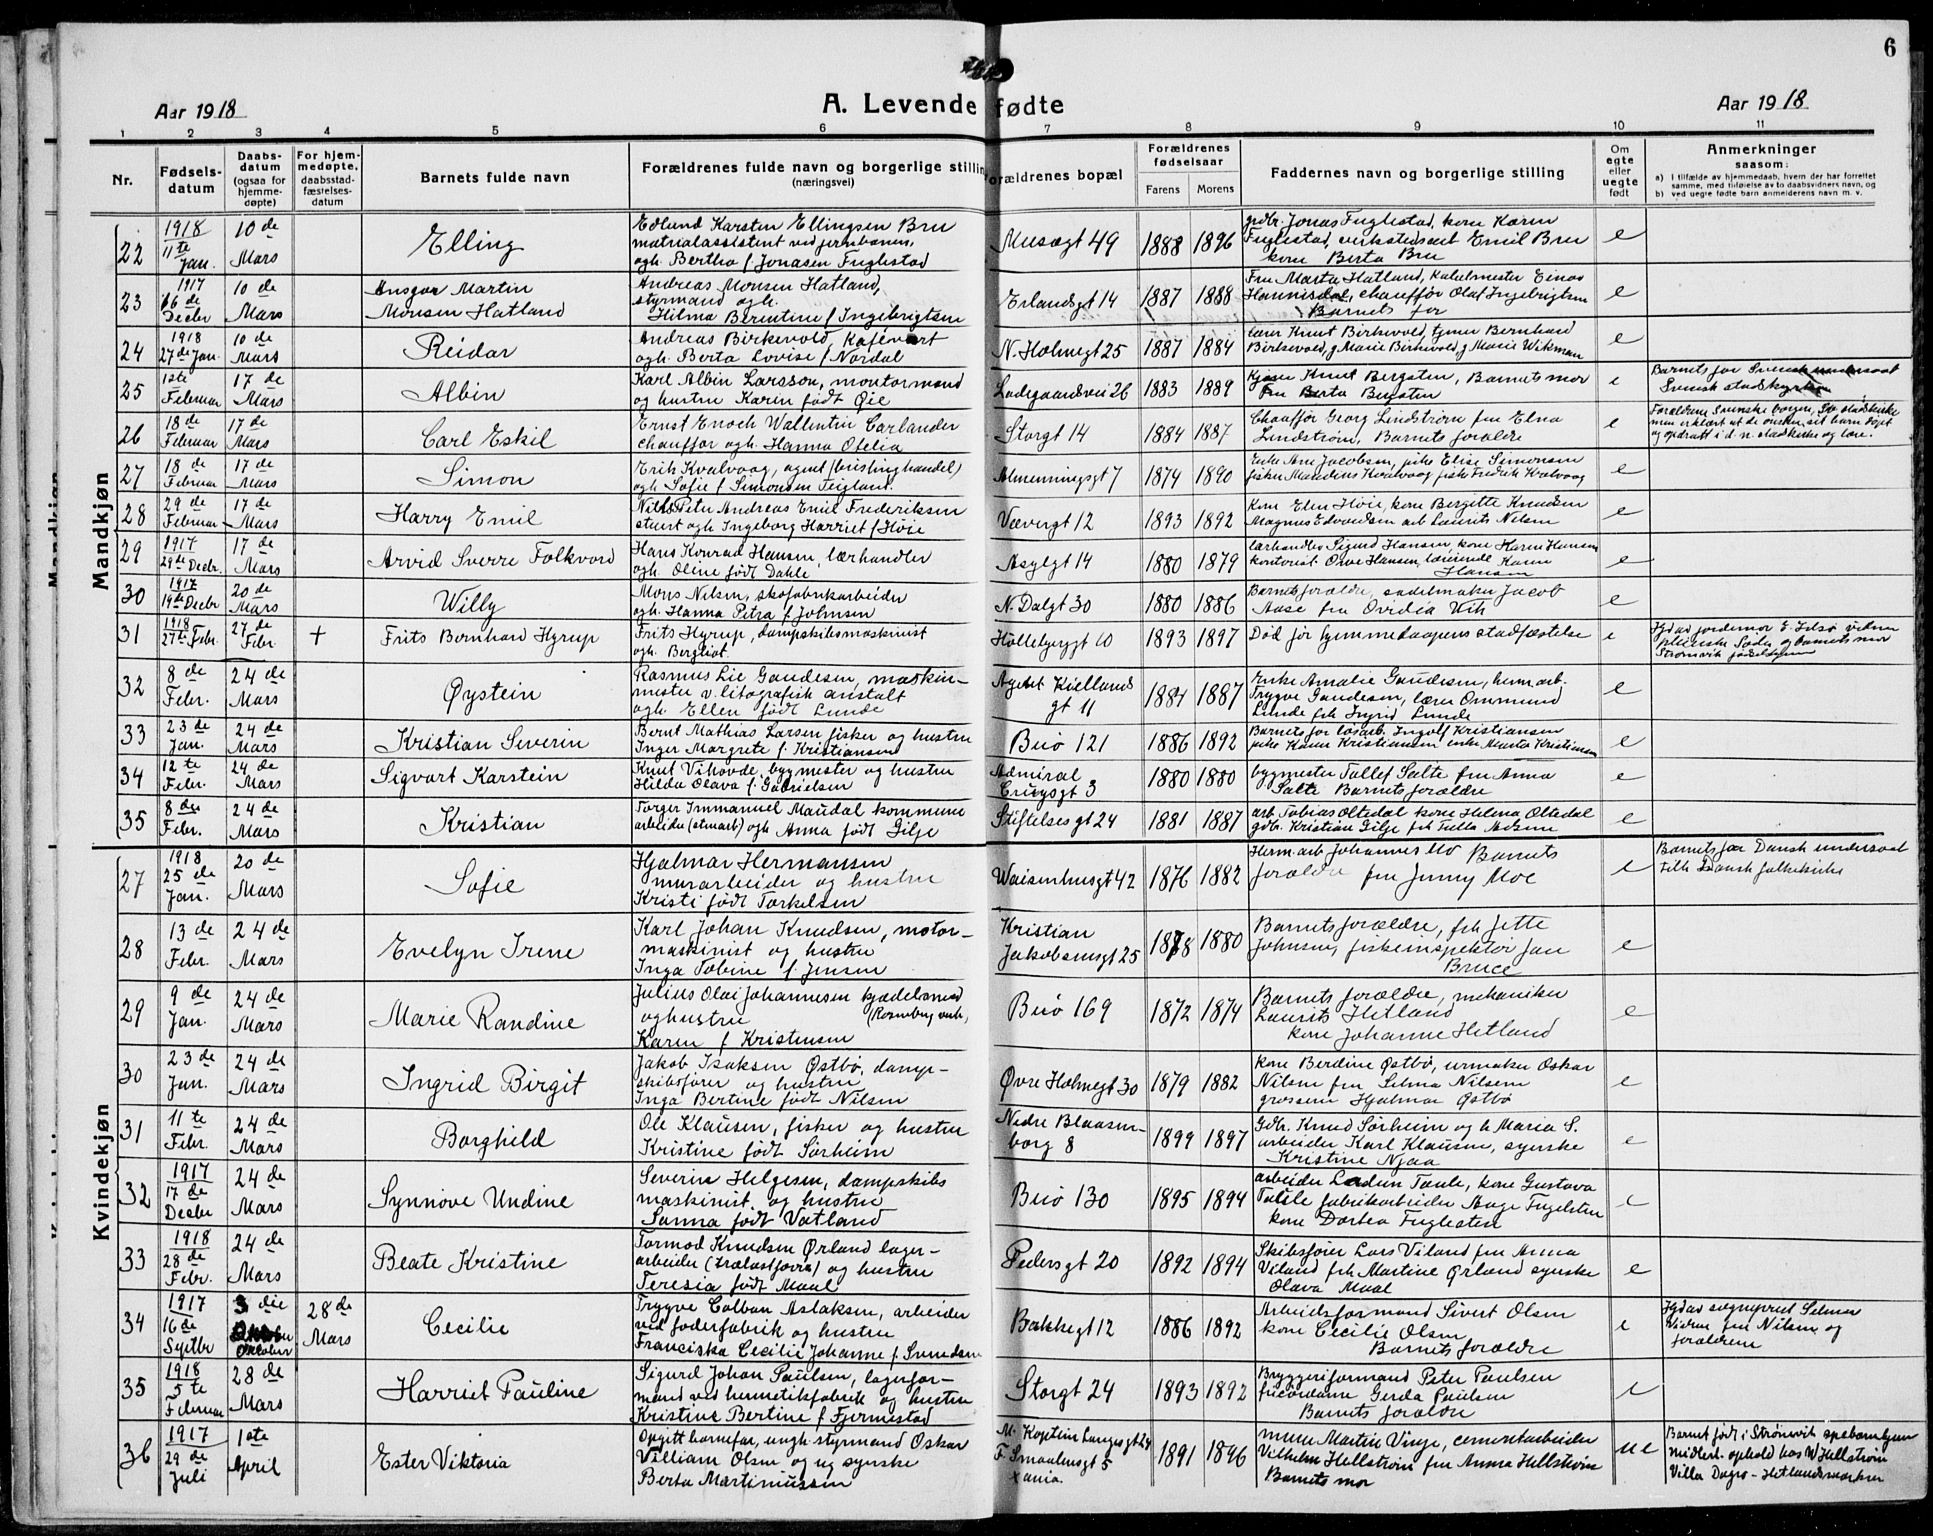 6
Aar 1918
A. Levende fødte
Aar 1918
1 2 3 4 5 6 7 8 9 10 11
Nr.
Fødsels-
datum
Daabs-
datum
(ogsaa for
hjemme-
døpte)
For hjem-
medøpte,
daabsstad-
fæstelses-
datum
Barnets fulde navn
Forældrenes fulde navn og borgerlige stilling
(næringsvei)
Forældrenes bopæl
Forældrenes
fødselsaar
Farens Morens
Faddernes navn og borgerlige stilling
Om
egte
eller
uegte
født
Anmerkninger
saasom:
a) I tilfælde av hjemmedaab, hvem der har forrettet
samme, med tilføielse av to daabsvidners navn, og
b) ved uegte fødte barn anmelderens navn m. v.
Mandkjøn
22
1918
11te
Jan.
10de
Mars
Elling
Edlund Karsten Ellingsen Bru
matrialassistent ved jernbanen,
ogh. Bertha f. Jonasen Fuglestad
Musægt 49
1888 1896
gdbr. Jonas Fuglestad, kone Karen
Fuglestad, Emil Bru
kone Berta Bru
e
23
1917
16de
Decbr
10de
Mars
Ansgar Martin
Monsen Hatland
Andreas Monsen Hatland,
styrmand ogh.
Hilma Berentine f. Ingebrigtsen
Erlandsgt 14
1887 1888
Fru Marta Hatland, Einar
Hannisdal, chauffør Olaf Ingebrigtsen
Barnets far
e
24
1918
27de Jan.
10de
Mars
Reidar
Andreas Birkevold, Kafévert
ogh. Berta Lovise f. Nordal
N. Holmegt 25
1887 1884
lærer Knut Birkevold, tjener Bernhard
Birkevold, g Marie Birkevold, g Marie Wikman
e
25
1ste
Februar
17de
Mars
Albin
Karl Albin Larsson, montørmand
og hustru Karin født Øie
Ladegaardsvei 26
1883 1889
Knut Bergsten, Barnets mor
Fru Berta Bergsten
e
Barnets far Svensk undersaat
Svensk
26
18de
Februar
17de
Mars
Carl Eskil
Ernst Enoch Wallentin Carlander
chauffør ogh. Hanna Ofelia
Storgt 14
1884 1887
Chauffør Georg Lindstrøm fru Elna
Lindstrøm, Barnets forældre
e
Forældrene Svenske
men erklært at de ønsker sit barn døpt
og opdratt i d. n. statskirke og lære.
27
18de
Februar
17de
Mars
Simon
Erik Kvalvaag, agent (brislinghandel)
ogh. Sofie f. Simonsen Teigland.
Almenningsgt 7
1874 1890
Enke Ane Jacobsen, pike Elise Simonsen
fisker Maudius Kvalvaag fisker Fredrik Kvalvaag
e
28
29de
Februar
17de
Mars
Harry Emil
Nils Peter Andreas Emil Frederiksen
stuert ogh Ingeborg Harriet f. Høie
Vævergt 12
1893 1892
Kone Elen Høie, kone Bergitte Knudsen
Magnus Edvardsen arb Laurits Nilsen
e
29
1917
29de Decbr.
17de
Mars
Arvid Sverre Folkvord
Hans Konrad Hansen, lærhandler
ogh. Oline født Dahle
Asylgt 14
1880 1879
lærhandler Sigurd Hansen, kone Karen Hansen
kontorist Hansen, Karen
Hansen
e
30
1917
19de Decbr
20de
Mars
Willy
Mons Nilsen, skofabrikarbeider
ogh. Hanna Petra f. Johnsen
N. Dalgt 30
1880 1886
Barnets forældre, sadelmaker Jacob
Aase fru Ovidia Wik
e
31
1918
27de Febr.
27de
Febr
+
Frits Bernhard Hyrup
Frits Hyrup, dampskibsmaskinist
ogh. Bergliot
Hollebergt 10
1893 1897
Død før hjemmedaapens stadfæstelse
e
Hjdøpt av jordemor E.
og barnets mor
Strømvik fødselshjem
32
8de
Febr.
24de
Mars
Øystein
Rasmus Lie Gaudesen, maskin-
mester v. litografisk anstalt
ogh. Ellen født Lunde
Kiellands
gt 11
1884 1887
Enke Amalie Gaudesen, husm.arb.
Trygve Gaudesen, lærer Ommund
Lunde frk Ingrid Lunde
e
33
23de
Jan.
24de
Mars
Kristian Severin
Bernt Mathias Larsen fisker og hustru
Inger Margrete f. Kristiansen
Buø 121
1886 1892
Barnets far løsarb. Ingolf Kristiansen
pike Karen Kristiansen enke Marta Kristiansen
e
34
12te
Febr.
24de
Mars
Sigvart Karstein
Knut Vihovde, bygmester og hustru
Hilda Olava f. Gabrielsen
Admiral
Cruysgt 3
1880 1880
bygmester Tollef Salte fru Anna
Salte Barnets forældre
e
35
8de
Febr.
24de
Mars
Kristian
Torger Immanuel Maudal kommune
arbeider (utmark) ogh Anna født Gilje
Stiftelsesgt 24
1881 1887
arb Tobias Oltedal kone Helena Oltedal
gdbr. Kristian Gilje frk Tulla
e
Kvindekjøn
27
1918
25de
Jan.
20de
Mars
Sofie
Hjalmar Hermansen
murarbeider og hustru
Kristi født Torkelsen
Waisenhusgt 42
1876 1882
Herm.arb Johannes Mo Barnets
forældre fru Jenny Moe
e
Barnets far Dansk undersaat
tilh Dansk folkekirke
28
13de
Febr.
24de
Mars
Evelyn Irene
Karl Johan Knudsen, motor-
maskinist og hustru
Inga Tobine f. Jensen
Kristian
Jakobsensgt 25
1878 1880
Barnets forældre, frk Jette
Johnsen, fiskeinspektør Jan
Bruce
e
29
9de
Jan.
24de
Mars
Marie Randine
Julius Olai Johannesen kjedelsmed
og hustru (Rosenberg verk)
Karen f. Kristensen
Buø 169
1872 1874
Barnets forældre, mekaniker
Laurits Hetland
kone Johanne Hetland
e
30
23de
Jan.
24de
Mars
Ingrid Birgit
Jakob Isaksen Østbø, damp-
skibsfører og hustru
Inga Bertine født Nilsen
Øvre Holmegt 30
1879 1882
kone Berdine Østbø, urmaker Oskar
Nilsen fru Selma Nilsen
grosserer Hjalmar Østbø
e
31
11te
Febr.
24de
Mars
Borghild
Ole Klausen, fisker og hustru
Kristine født Sørheim
Nedre Blaasen-
borg 8
1899 1897
Gdbr. Knud Sørheim og h Maria S.
arbeider Karl Klausen, syerske
Kristine Njaa
e
32
1917
17de
Decbr
24de
Mars
Synnøve Undine
Severin Helgesen, dampskibs
maskinist og hustru
Sanna født Vatland
Buø 130
1895 1894
arbeider Taule, kone Gustava
Taule fabrikarbeider Aage Fuglesten
kone Dorthea Fuglesten
e
33
1918
28de
Febr.
24de
Mars
Beate Kristine
Tormod Knudsen Ørland lager-
arbeider (trælastforr.) og hustru
Teresia født Maal
Pedersgt 20
1892 1894
Skibsfører Lars Viland fru Anna
Viland frk Martine Ørland syerske
Olava Maal
e
34
1917
16de
Septbr
3die
Oktober
28de
Mars
Cecilie
Trygve Colban Aslaksen, arbeider
ved foderfabrik og hustru
Franciska Cecilie Johanne f. Svendsen
Bakkegt 12
1886 1892
Arbeidsformand Sivert Olsen
kone Cecilie Olsen
Barnets forældre
e
Hjd av sogneprest Selmer
fru Nilsen og
forældrene
35
1918
5te
Februar
28de
Mars
Harriet Pauline
Sigurd Johan Paulsen, lagerfor-
mand ved hermetikfabrik og hustru
Kristine Bertine f. Fjermestad
Storgt 24
1893 1892
Bryggeriformand Peter Paulsen
Gerda Paulsen
Barnets forældre
e
36
1917
29de
Juli
1ste
April
Ester Viktoria
Opgitt barnefar, ungk. styrmand Oskar
William Olsen og ug syerske
Berta Martinussen
M. Kaptein Langesgt 24
F. Smaalensgt 5
Xania.
1891 1896
murer Martin Vinje, cementarbeider
Vilhelm Hellstrøm fru Anna Hellstrøm
Barnets mor
ue
Barnet født i Strømvik
midlert. ophold hos W Hellstrøm
Villa Dagro - Hetlandsmarken